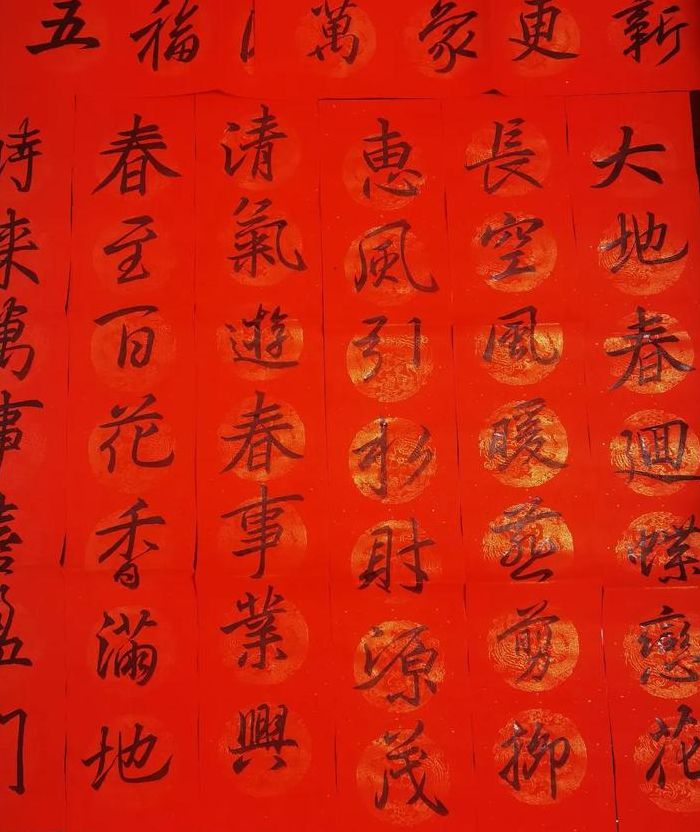 五福
萬象更新
大地春迴蝶戀花
長空風暖燕剪柳
恵風引彩財源茂
清氣遊春事業興
春至百花香滿地
時来萬事喜盈門